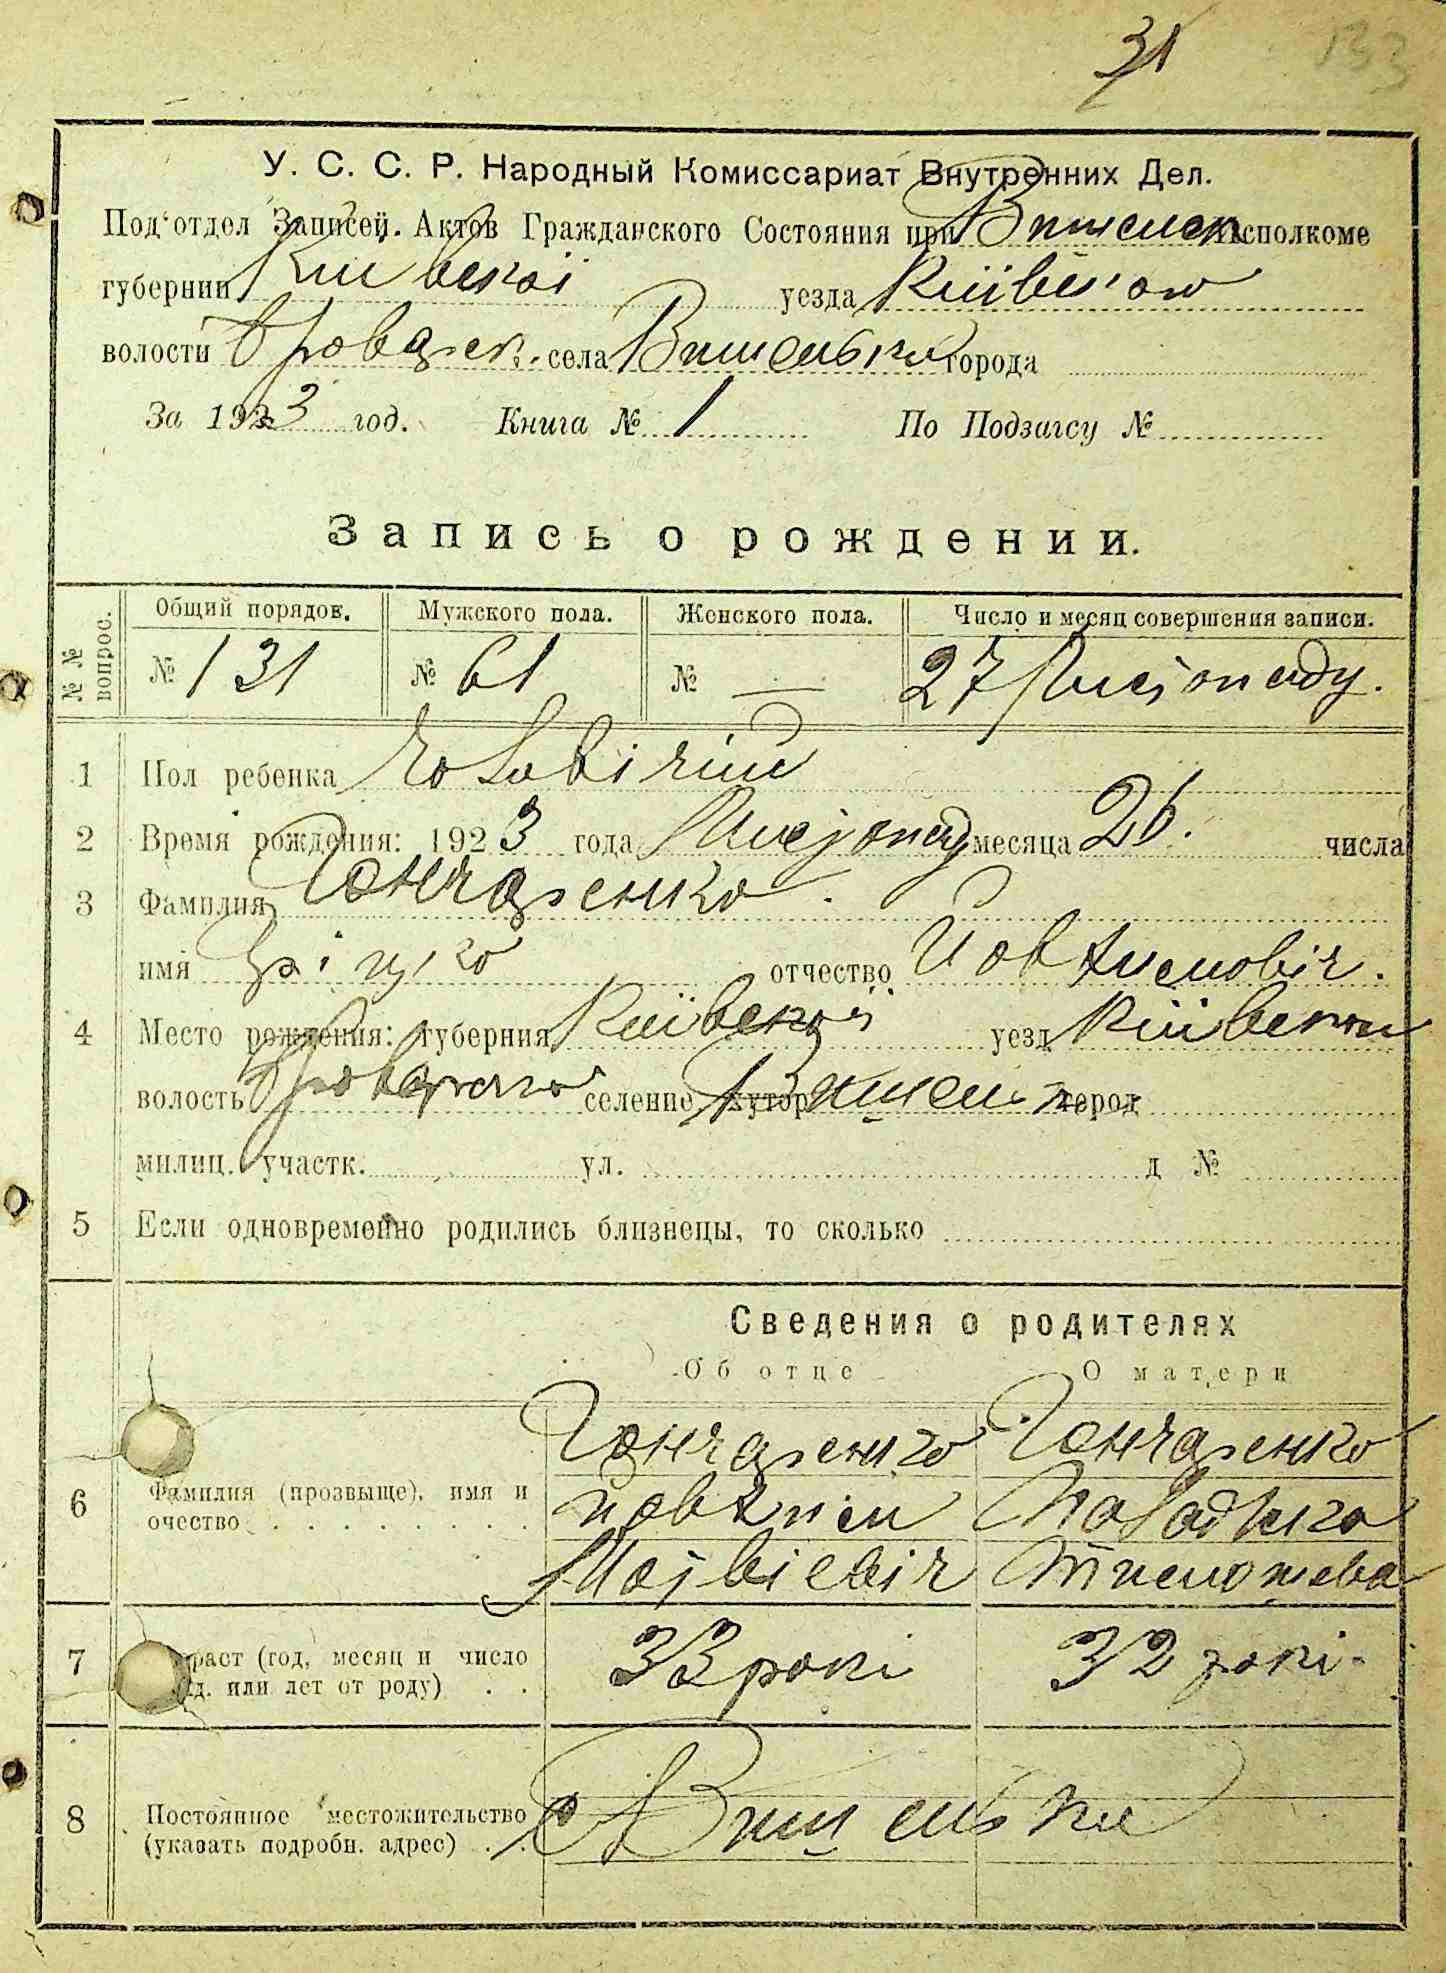 31
133
У. С. С. Р. Народный Комиссариат Внутренних Дел.
Под'отдел Записей. Актов Гражданского Состояния при Вишенск Исполкоме
губернии Київської уезда Київсько
волости Броварск. села Вишеньки города
За 1923 год. Книга № 1 По Подзагсу №
Запись о рождении.
№№ вопрос. Общий порядов. Мужского пола. Женского пола. Число и месяц совершения записи.
№ 131 № 61 № — 27 Листопаду.
1 Пол ребенка
2 Время рождения: 1923 года Листопад месяца 26. числа
3 Фамилия Гончаренко.
имя Грицко отчество Йовхимовіч.
4 Место рождения: губерния Київської уезд Київськой
волость Броварско селение хутор Вишеньк город
милиц. участк. ул. д №
5 Если одновременно родились близнецы, то сколько
Сведения о родителях
Об отце О матери
6 Фамилия (прозвыще), имя и очество
Гончаренко Гончаренко
Йовхим Палажка
Матвіевіч Тимошева
7 раст (год, месяц и число
д. или лет от роду) 33 рокі 32 рокі.
8 Постоянное местожительство
(указать подробн. адрес) с Вишеньки